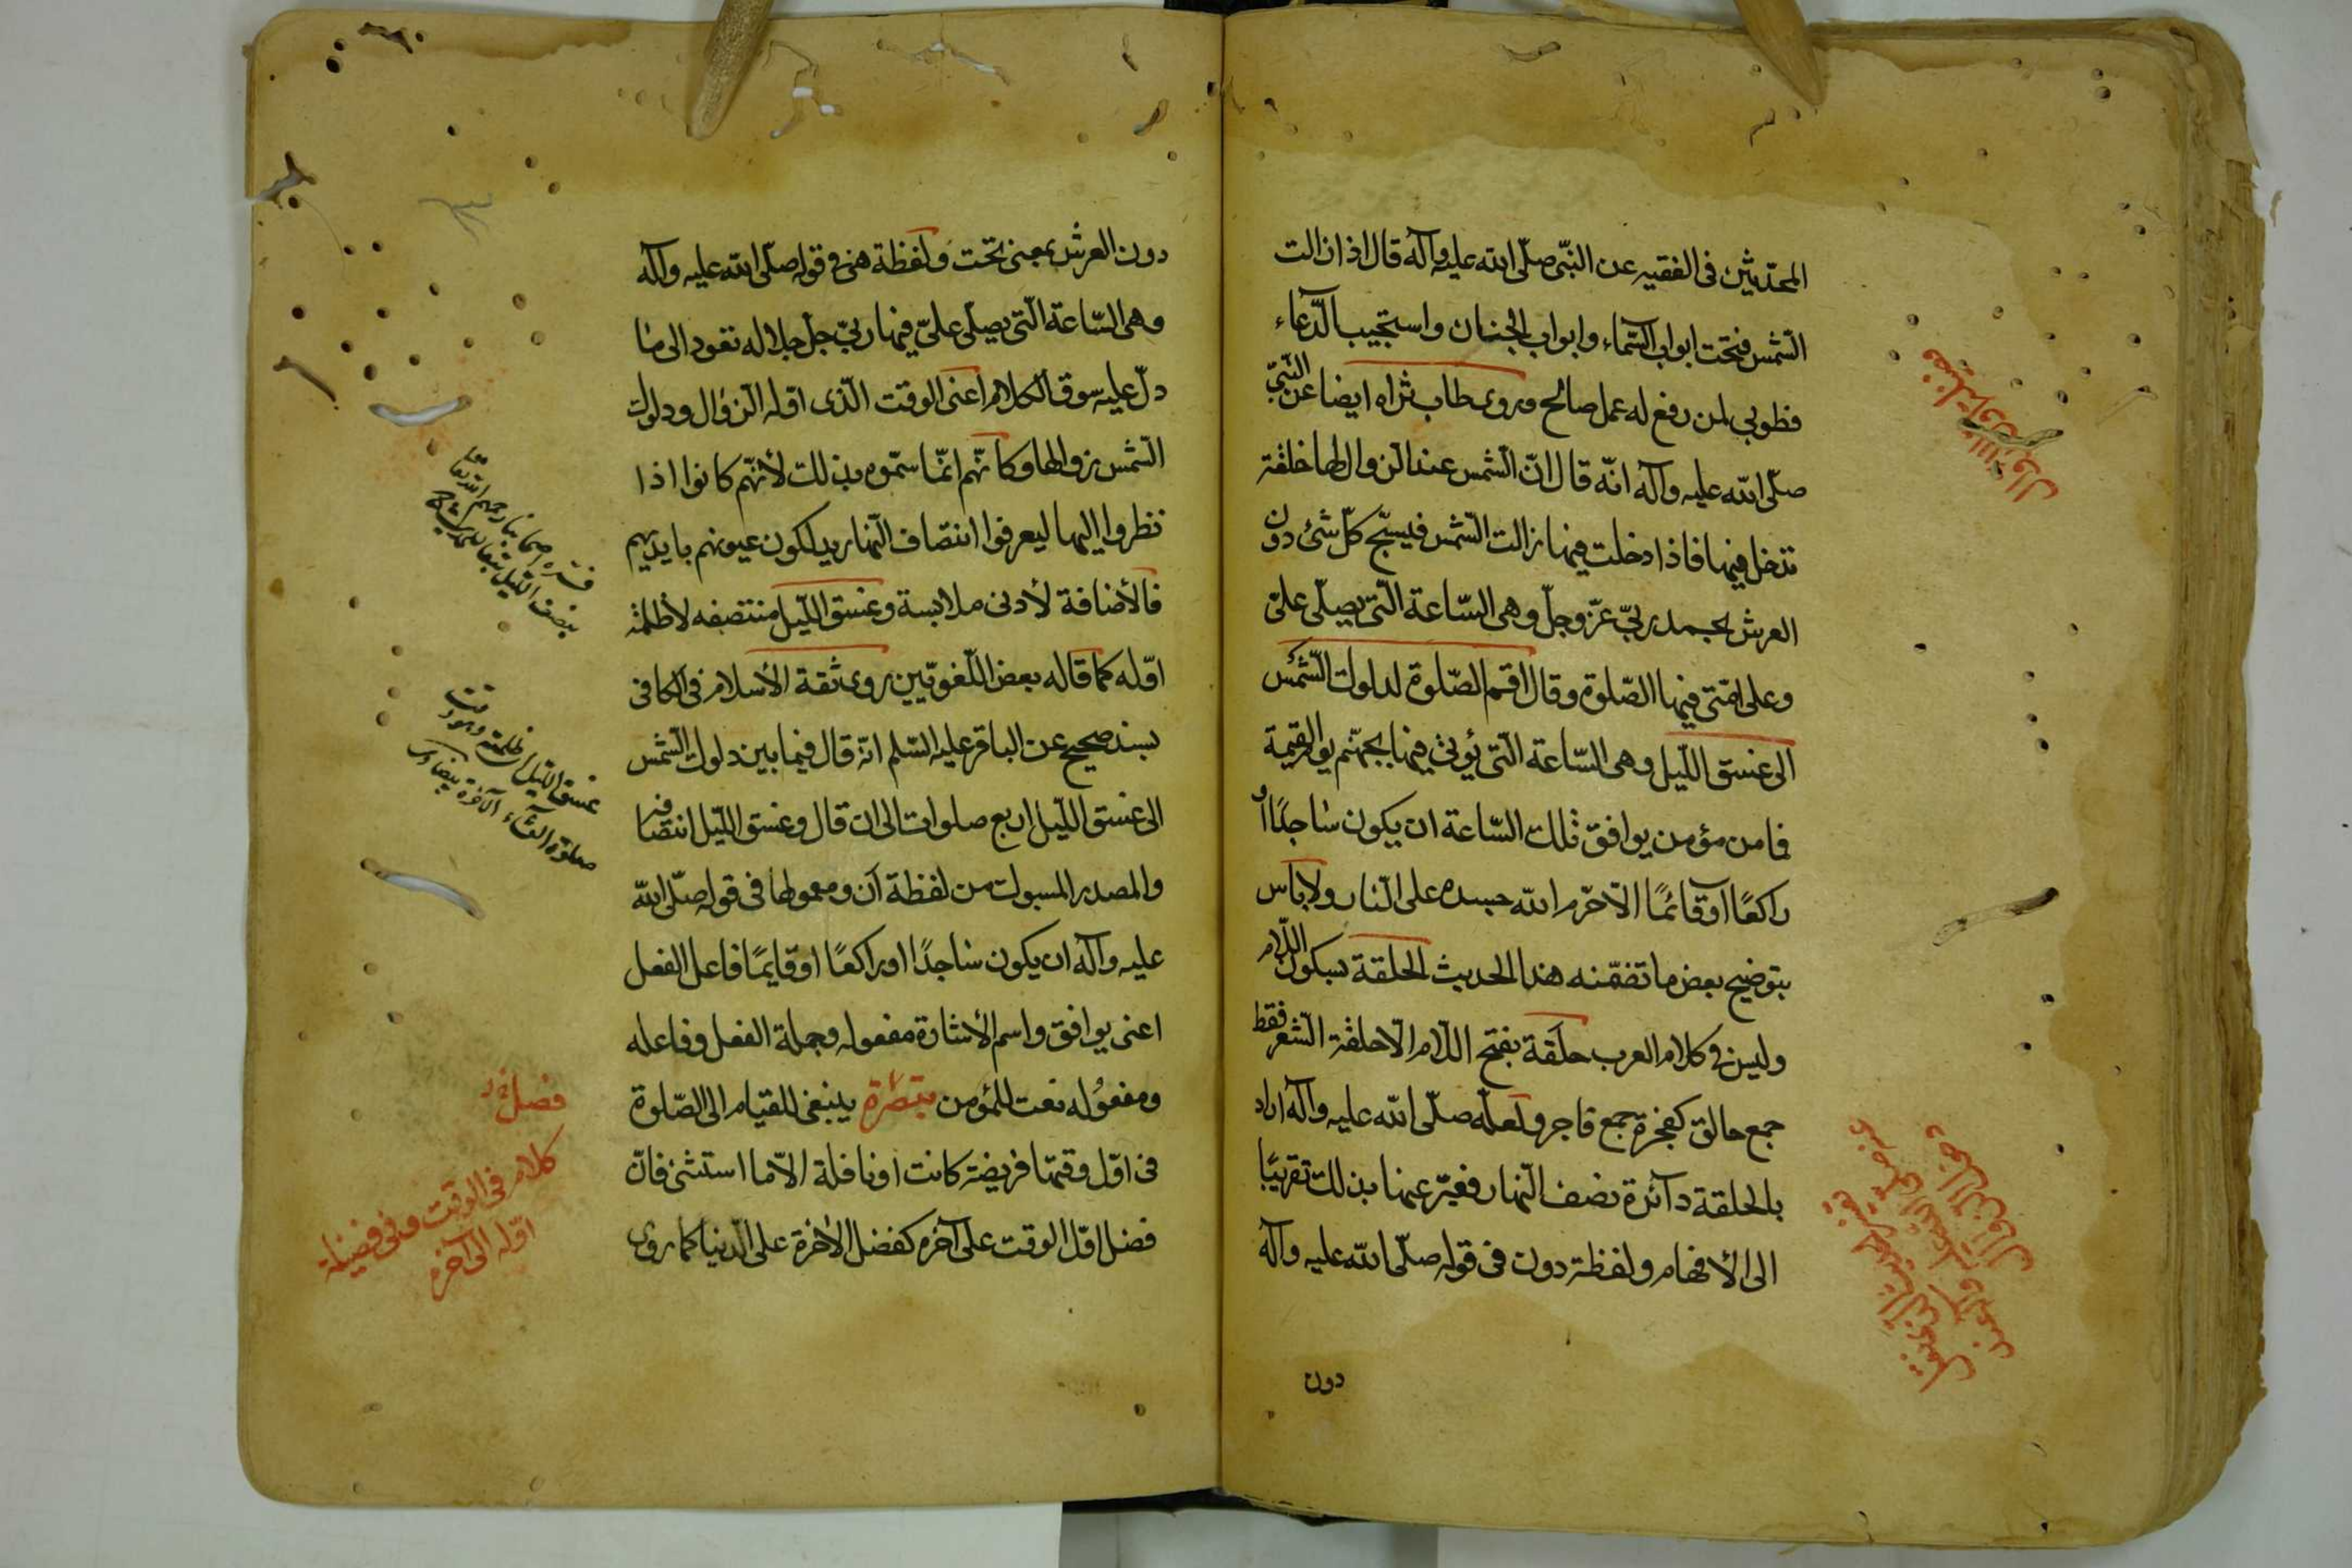 المحدّثين فى الفقيه عن النبّى صلّى الله عليه وآله قال اذا زالت
الشّمس فتحت ابواب السّماء وابواب الجنان واستجيب الدّعاء
فطوبى لمن رفع له عمل صالح وروى طاب ثراه ايضا عن النّبىّ
صلّى الله عليه وآله انّه قال انّ الشّمس عند الزوال لها حلقة
تدخل فيها فاذا دخلت فيها زالت الشّمس فيسبّح كلّ شئ دون
العرش بحمد ربىّ عزّ وجلّ وهى السّاعة الّتى يصلّى علىّ
وعلى امّتى فيها الصّلوة وقال اقم الصّلوة لدلوك الشّمس
الى غسق اللّيل وهى السّاعة الّتى يؤتى فيها بجهنّم يوم القيمة
فما من مؤمن يوافق تلك السّاعة ان يكون ساجدًا او
راكعًا او قائمًا الّا حرّم الله جسده على النّار ولا باس
بتوضيح بعض ما تضمّنه هذا الحديث الحلقة بسكون اللّام
وليس فى كلام العرب حلَقة بفتح اللّام الّا حلقة الشّعر فقط
جمع حالق كفجرة جمع فاجر ولعلّه صلّى الله عليه وآله اراد
بالحلقة دآئرة نصف النّهار فعبّر عنها بذلك تقريبًا
الى الأفهام ولفظة دون فى قوله صلّى الله عليه وآله
دون
دون العرش بمعنى تحت ولفظة هى فى قوله صلّى الله عليه وآله
وهى السّاعة الّتى يصلّى علىّ فيها ربىّ جلّ جلاله تعود الى ما
دلّ عليه سوق الكلام اعنى الوقت الّذى اوّله الزوال ودلوك
الشّمس زوالها وكانّهم انّما سمّوه بذلك لأنّهم كانوا اذا
نظروا اليها ليعرفوا انتصاف النّهار يدلكون عيونهم بايديهم
فالأضافة لأدنى ملابسة وغسق اللّيل منتصفه لا ظلمة
اوّله كما قاله بعض اللّغويّين روى ثقة الأسلام فى الكافى
بسند صحيح عن الباقر عليه السّلم انّه قال فيما بين دلوك الشّمس
الى غسق اللّيل اربع صلوات الى ان قال وغسق اللّيل انتصافه
والمصدر المسبوك من لفظة أن ومعمولها فى قوله صلّى الله
عليه وآله ان يكون ساجدًا او راكعًا او قايمًا فاعل الفعل
اعنى يوافق واسم الأشارة مفعوله وجملة الفعل وفاعله
ومفعوله نعت للمؤمن تبصرة ينبغى القيام الى الصّلوة
فى اوّل وقتها فريضة كانت او نافلة الّا ما استثنى فانّ
فضل اوّل الوقت على آخره كفضل الأخرة على الدّنيا كما روى
فسّره اصحابنا رحمهم الله تعا
بنصف اللّيل
غسق اللّيل ظلمته وهو وقت
صلوة العشآء الآخرة بيضاوى
فصل فى
كلام فى الوقت وفى فضيلة
اوّله الى آخره